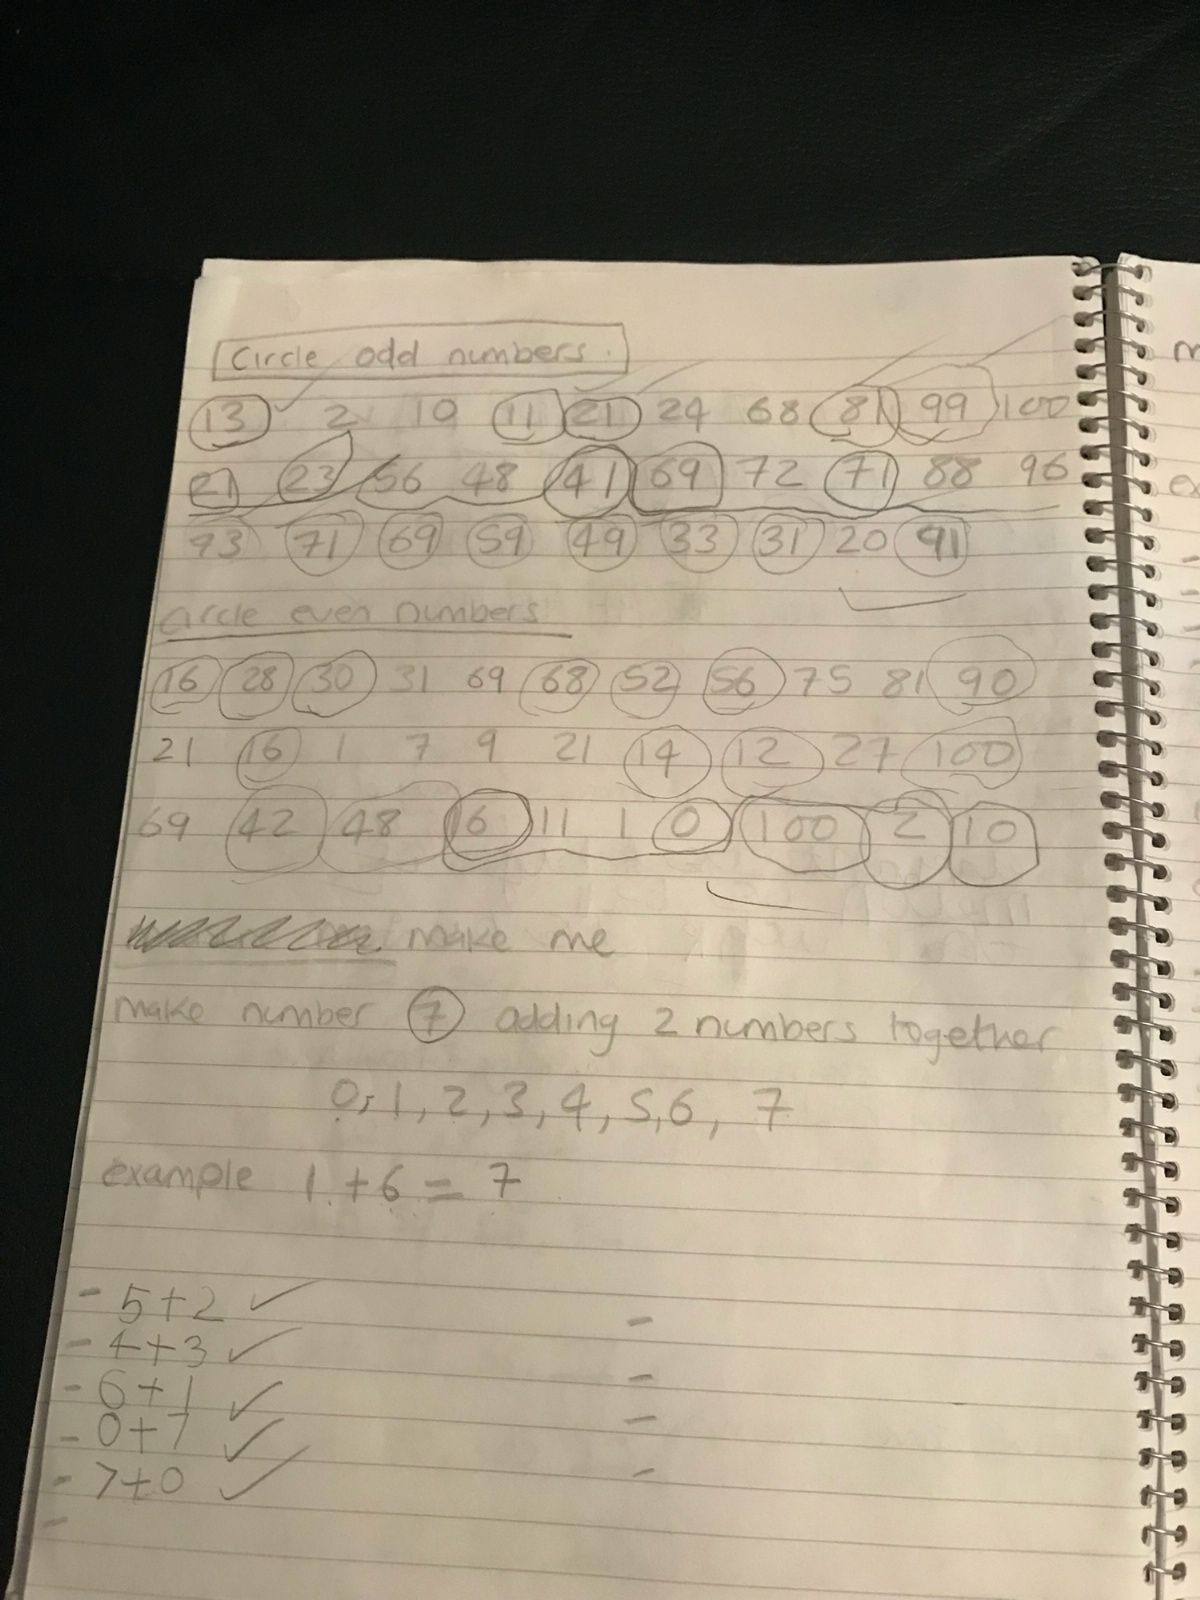 Circle odd numbers.
13 2 10 11 21 24 68 81 99 100
21 23 56 48 41 69 72 71 88 96
93 71 69 59 49 33 31 20 91
circle even numbers
16 28 30 31 69 68 52 56 75 81 90
21 16 1 7 9 21 14 12 27 100
69 42 48 16 11 1 0 100 2 10
make me
make number 7 adding 2 numbers together
0, 1, 2, 3, 4, 5, 6, 7
example 1 + 6 = 7
- 5+2 ✓ -
- 4+3 ✓ -
- 6+1 ✓ -
- 0+7 ✓ -
- 7+0 ✓
-